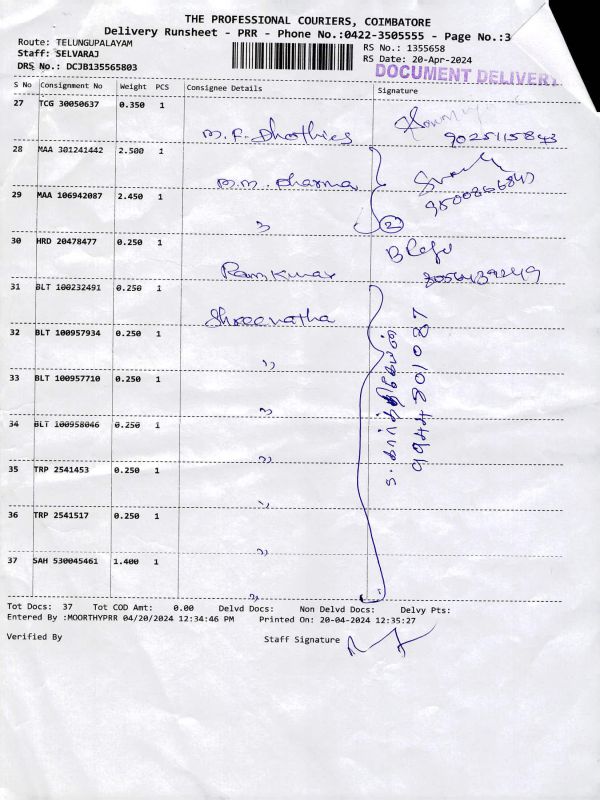 THE PROFESSIONAL COURIERS, COIMBATORE
Delivery Runsheet - PRR - Phone No.:0422-3505555 - Page No.:3
Route: TELUNGUPALAYAM
Staff: SELVARAJ
DRS No.: DCJB135565803
RS No.: 1355658
RS Date: 20-Apr-2024
DOCUMENT DELIVERY
S No Consignment No Weight PCS Consignee Details Signature
27 TCG 30050637 0.350 1
M.F. Dhothies
9025115843
28 MAA 301241442 2.500 1
M.M. Dharma
29 MAA 106942087 2.450 1
"
2
30 HRD 20478477 0.250 1
Ramkumar
31 BLT 100232491 0.250 1
Shreenatha
32 BLT 100957934 0.250 1
"
33 BLT 100957710 0.250 1
"
34 BLT 100958046 0.250 1
"
35 TRP 2541453 0.250 1
"
36 TRP 2541517 0.250 1
"
37 SAH 530045461 1.400 1
"
ச. கார்த்திகேயன்
9944801087
Tot Docs: 37 Tot COD Amt: 0.00 Delvd Docs: Non Delvd Docs: Delvy Pts:
Entered By :MOORTHYPRR 04/20/2024 12:34:46 PM Printed On: 20-04-2024 12:35:27
Verified By Staff Signature